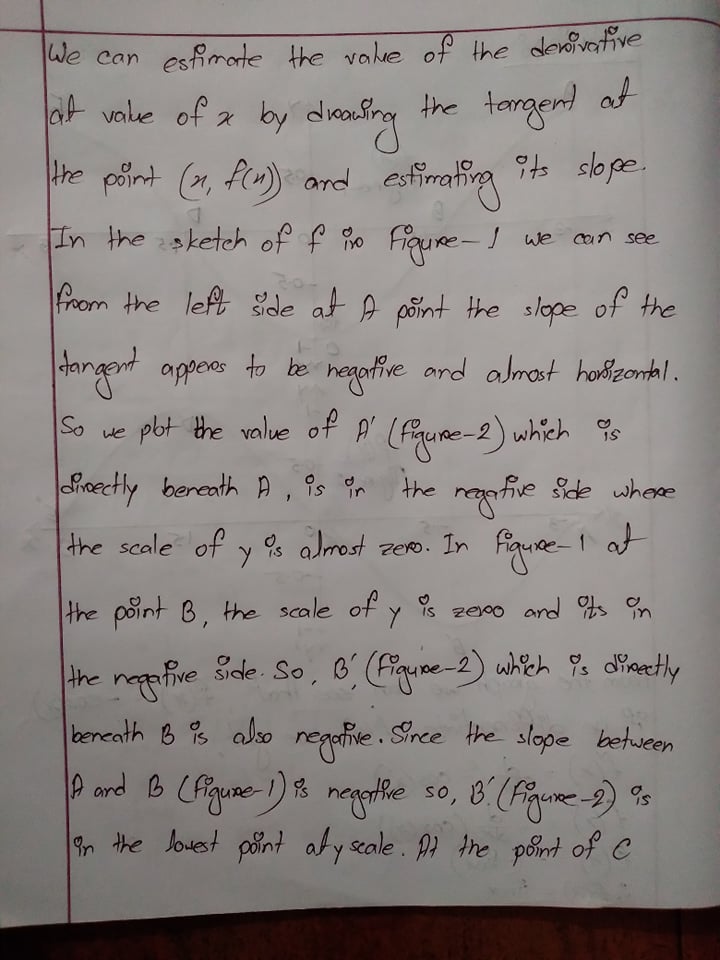 We can estimate the value of the derivative
at value of x by drawing the tangent at
the point (x, f(x)) and estimating its slope.
In the sketch of f in Figure-1 we can see
from the left side at A point the slope of the
tangent appers to be negative and almost horizontal.
So we plot the value of A' (figure-2) which is
directly beneath A, is in the negative side where
the scale of y is almost zero. In figure-1 at
the point B, the scale of y is zero and its in
the negative side. So, B', (figure-2) which is directly
beneath B is also negative. Since the slope between
A and B (figure-1) is negative so, B' (figure-2) is
in the lowest point at y scale. At the point of C